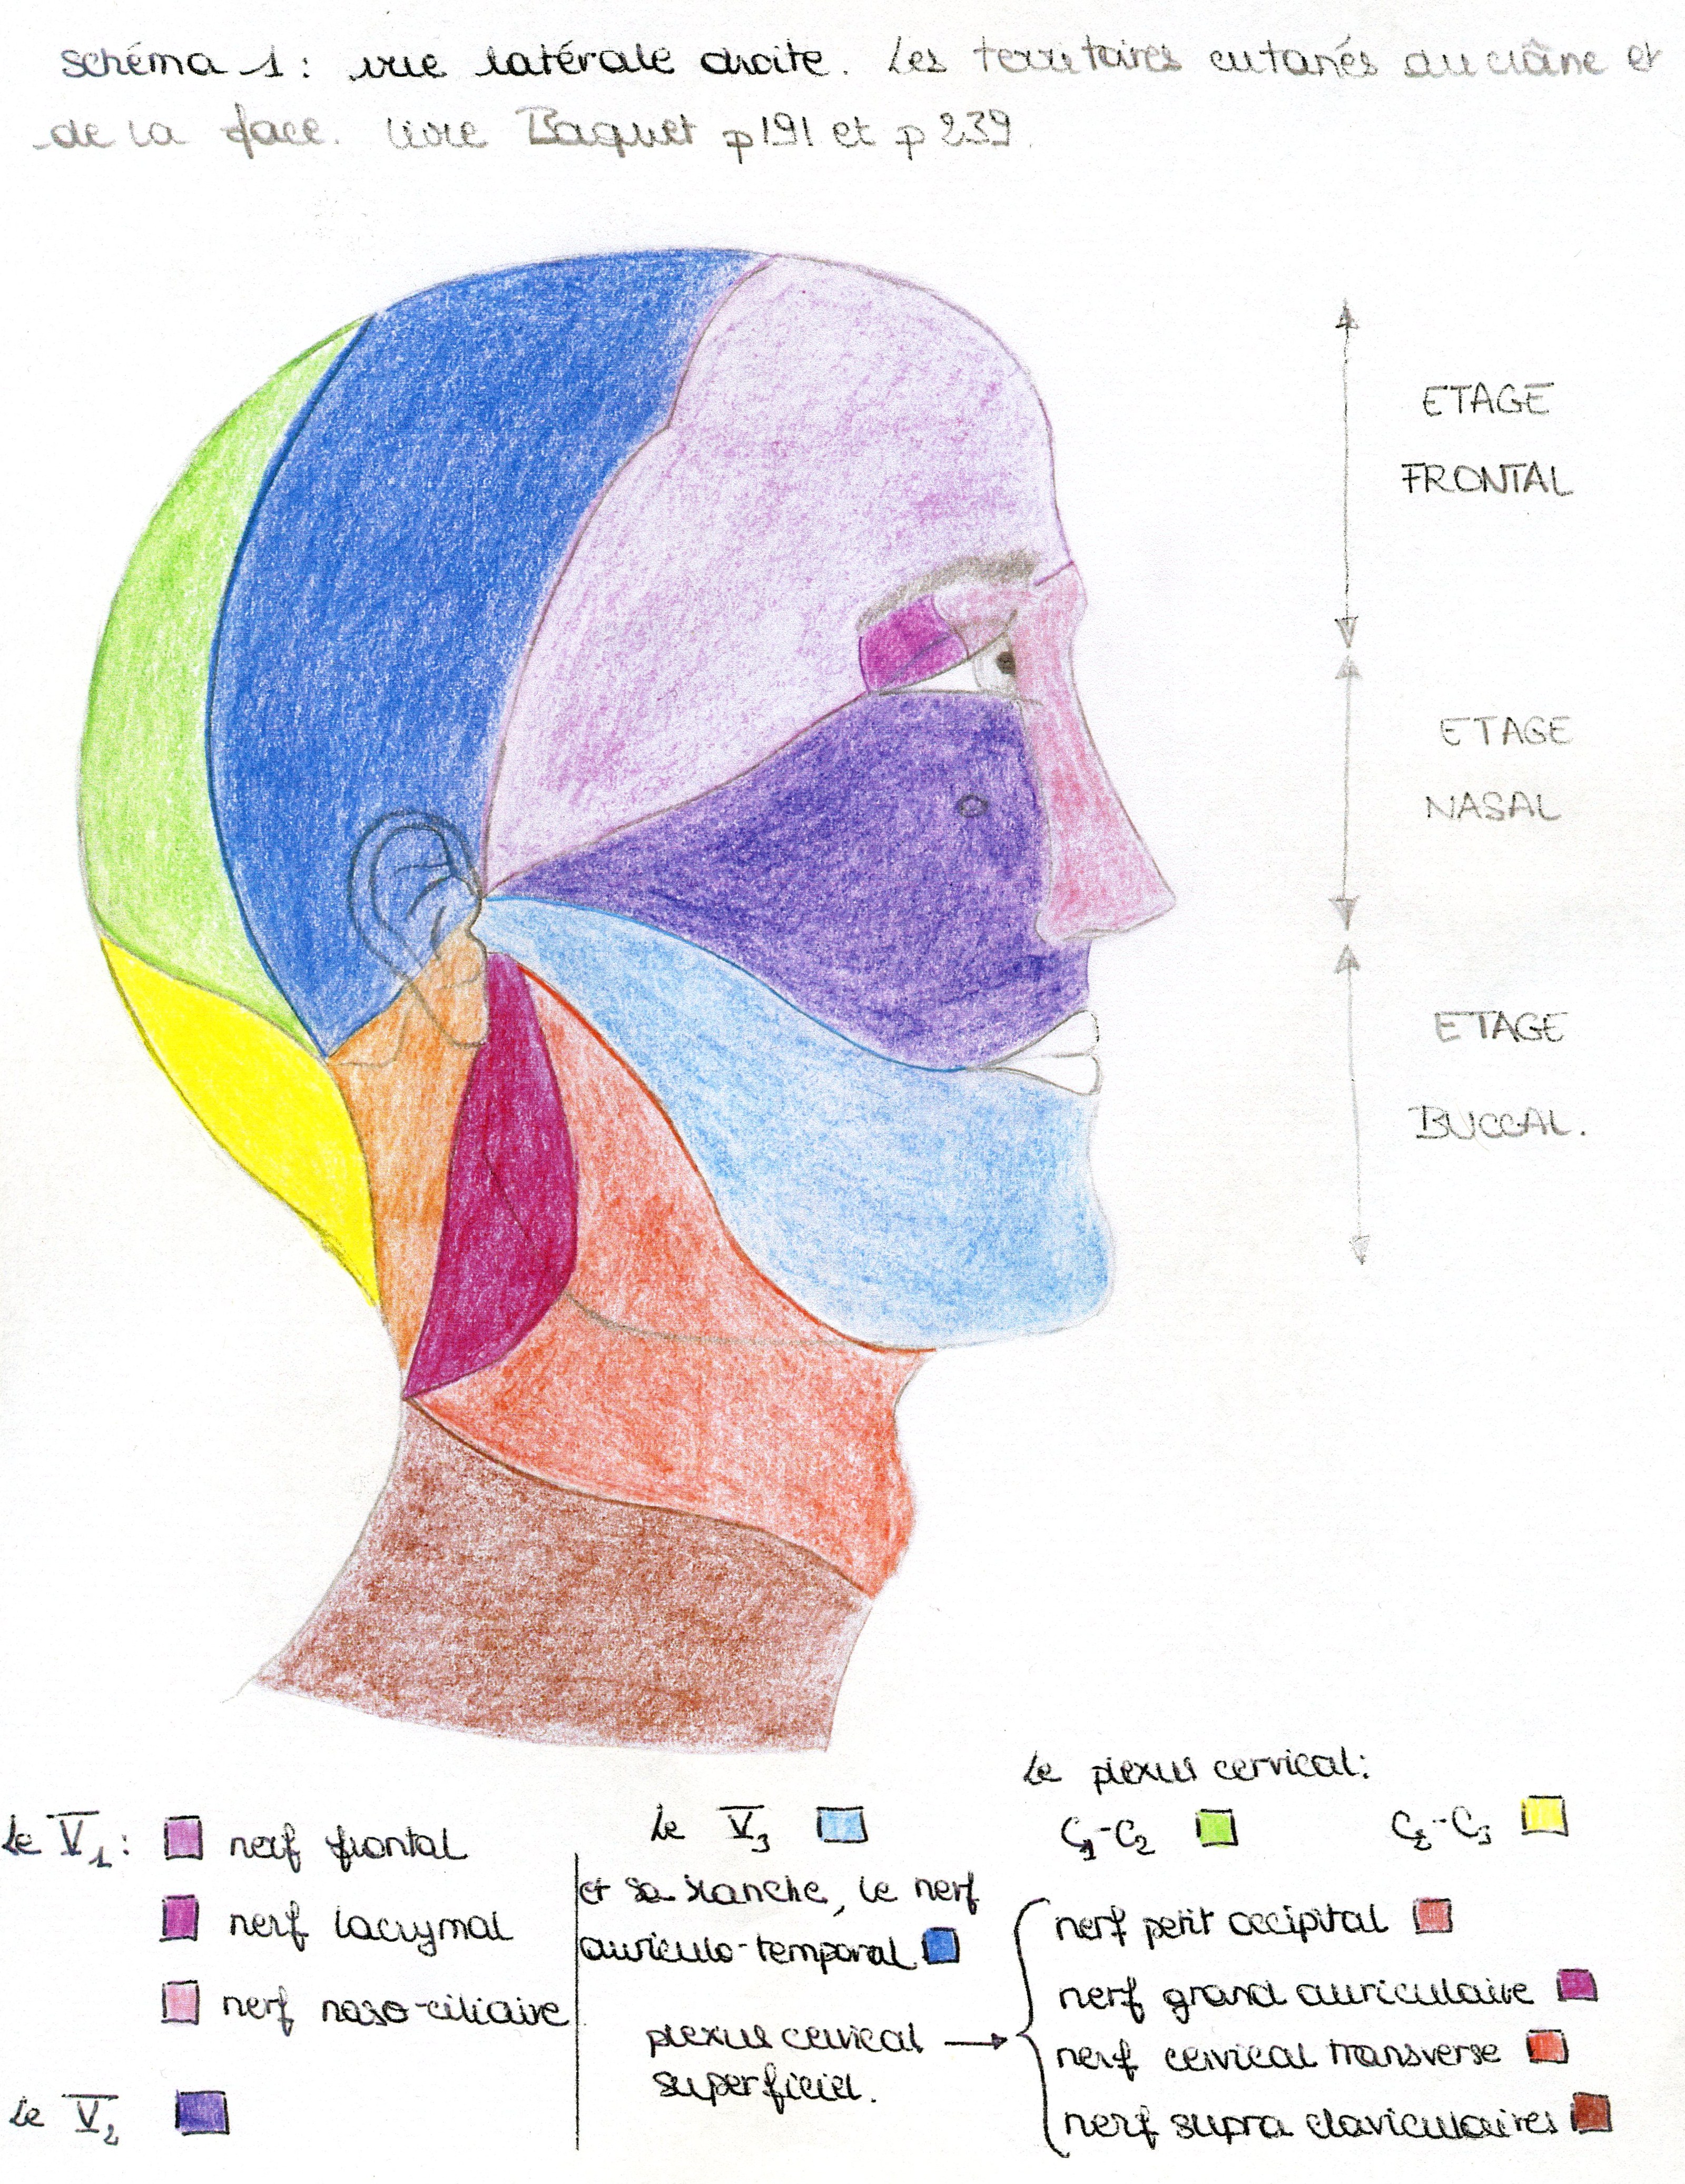 Schéma 1 : vue latérale droite. Les territoires cutanés du crâne et
de la face. livre Baquet p 191 et p 239.
ETAGE
FRONTAL
ETAGE
NASAL
ETAGE
BUCCAL.
Le V1 :
nerf frontal
nerf lacrymal
nerf naso-ciliaire
Le V2
Le V3
et sa branche, le nerf
auriculo-temporal
plexus cervical
superficiel.
Le plexus cervical :
C1-C2
C2-C3
nerf petit occipital
nerf grand auriculaire
nerf cervical transverse
nerf supra claviculaires